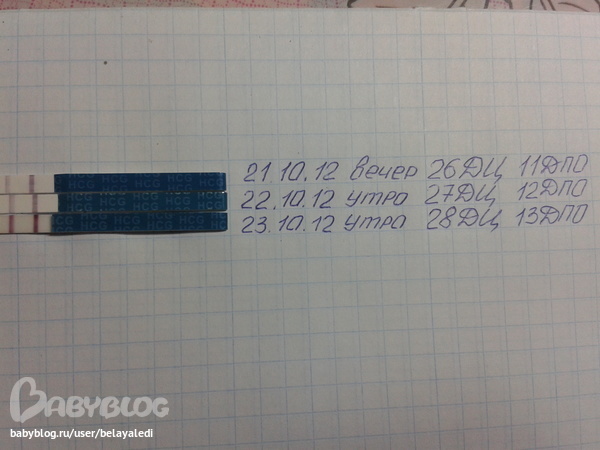 21.10.12 вечер 26ДЦ 11ДПО
HCG HCG HCG HCG
22.10.12 утро 27ДЦ 12ДПО
HCG HCG HCG HCG
23.10.12 утро 28ДЦ 13ДПО
HCG HCG HCG HCG
BABYBLOG
babyblog.ru/user/belayaledi